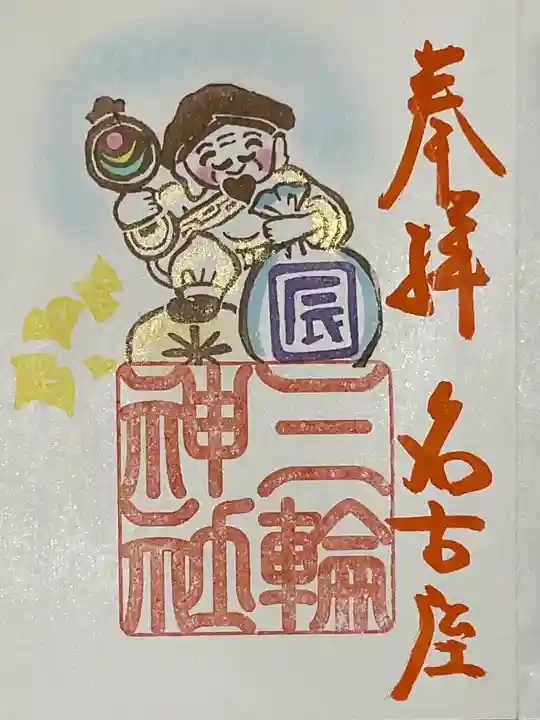 奉拝
名古屋
辰
三輪
神社